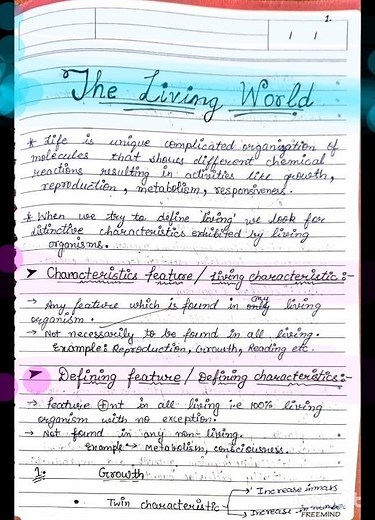 1.
The Living World
* Life is unique complicated organization of
molecules that shows different chemical
reactions resulting in activities like growth,
reproduction, metabolism, responsiveness.
* When we try to define 'living' we look for
distinctive characteristics exhibited by living
organisms.
➤ Characteristics feature / Living characteristic:-
→ Any feature which is found in any living
organism.
→ Not necessarily to be found in all living.
Example: Reproduction, Growth, Reading etc.
➤ Defining feature / Defining characteristics:-
→ feature ⊕nt in all living i.e 100% living
organism with no exception.
→ Not found in any non-living.
Example → Metabolism, consciousness.
1. Growth
• Twin characteristic → Increase in mass
→ Increase in number
FREEMIND